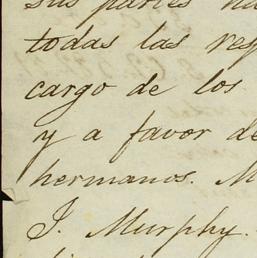 sus partes
todas las
cargo de los
y a favor de
hermanos. M
J. Murphy.